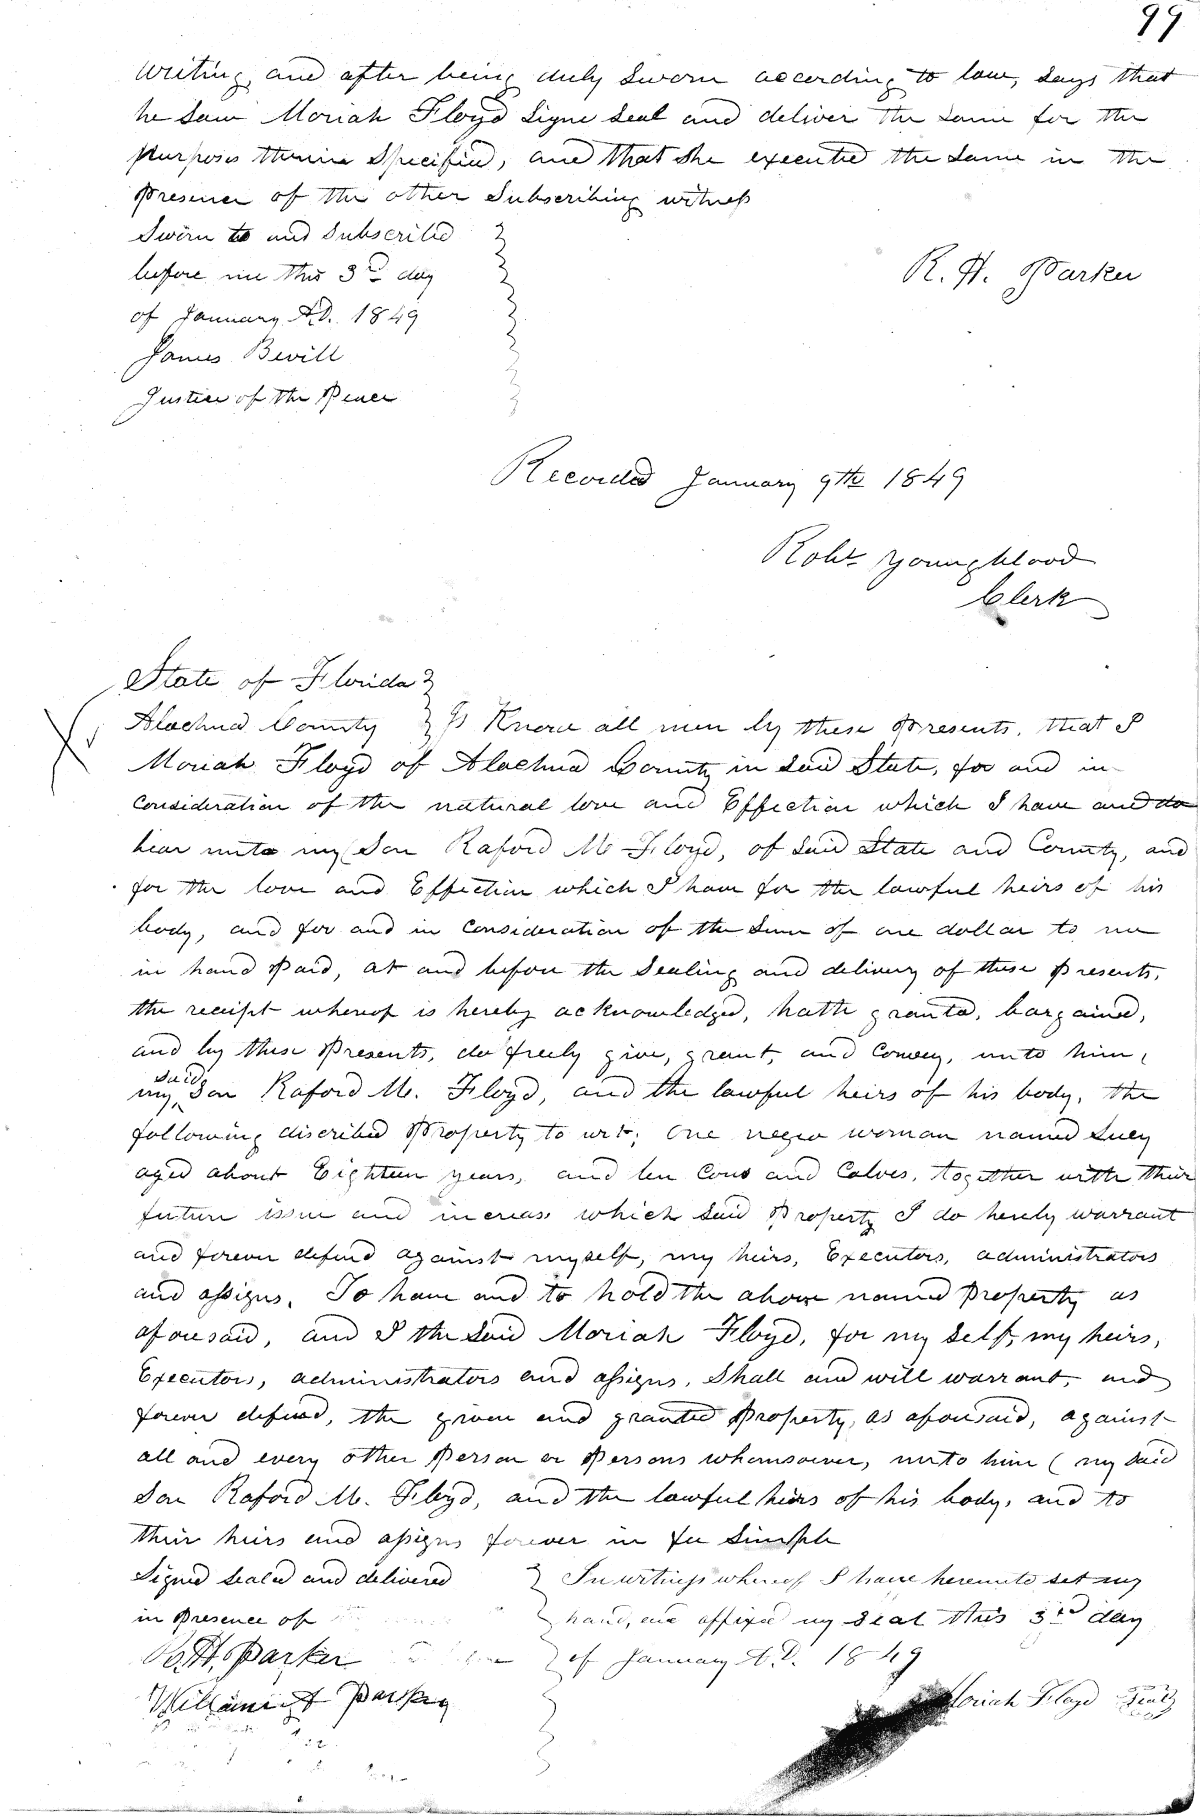 99
writing, and after being duly Sworn according to law, says that
he saw Moriah Floyd Signe Seal and deliver the same for the
purposes therein Specified, and that she executed the same in the
Presence of the other Subscribing witness
Sworn to and Subscribed
before me this 3rd day
of January A.D. 1849
James Bevill
Justice of the Peace
R. H. Parker
Recorded January 9th 1849
Robt Youngblood
Clerk
State of Florida
Alachua County } Know all men by these Presents, that I
Moriah Floyd of Alachua County in Said State, for and in
consideration of the natural love and Effection which I have and do
bear unto my Son Raford M Floyd, of Said State and County, and
for the love and Effection which I have for the lawful heirs of his
body, and for and in consideration of the Sum of one dollar to me
in hand Paid, at and before the Sealing and delivery of these Presents,
the receipt whereof is hereby acknowledged, hath granted, bargained,
and by these Presents, do freely give, grant, and Convey, unto him,
my said Son Raford M. Floyd, and the lawful heirs of his body, the
following discribed Property to wit; One negro woman named Lucy
aged about Eighteen years, and ten Cows and Calves, together with their
future issue and increase which Said Property I do hereby warrant
and forever defend against myself, my heirs, Executors, administrators
and assigns. To have and to hold the above named Property as
aforesaid, and I the Said Moriah Floyd, for my Self, my heirs,
Executors, administrators and assigns, Shall and will warrant, and
forever defend, the given and granted Property, as aforesaid, against
all and every other Person or Persons whomsoever, unto him ( my Said
Son Raford M. Floyd, and the lawful heirs of his body, and to
their heirs and assigns forever in fee Simple
Signed Sealed and delivered
in Presence of
R. H. Parker
William Parker
In witness whereof I have hereunto set my
hand, and affixed my Seal this 3rd day
of January A.D. 1849
Moriah Floyd Seal